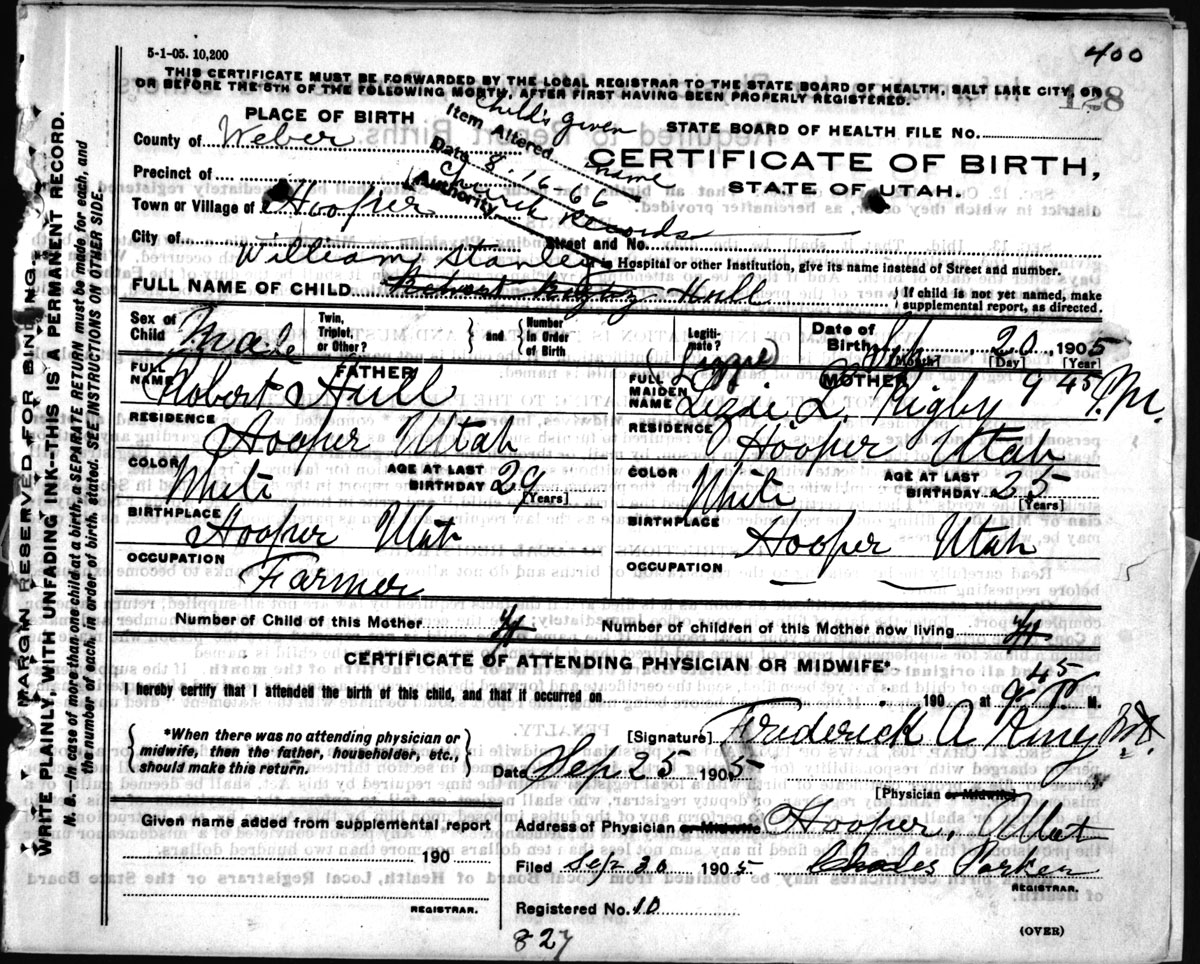 400
5-1-05. 10,200
THIS CERTIFICATE MUST BE FORWARDED BY THE LOCAL REGISTRAR TO THE STATE BOARD OF HEALTH, SALT LAKE CITY, ON
OR BEFORE THE 5TH OF THE FOLLOWING MONTH, AFTER FIRST HAVING BEEN PROPERLY REGISTERED.
128
PLACE OF BIRTH
County of Weber
Precinct of
Town or Village of Hooper
City of
Item Altered Child's given name
Date 8-16-66
Authority Church Records
STATE BOARD OF HEALTH FILE NO.
CERTIFICATE OF BIRTH,
STATE OF UTAH.
Street and No.
If in Hospital or other Institution, give its name instead of Street and number.
William Stanley
FULL NAME OF CHILD Robert Rigby Hull
If child is not yet named, make
supplemental report, as directed.
Sex of Child Male
Twin, Triplet, or Other?
and
Number in Order of Birth
Legiti-mate?
Date of Birth 20, 1905
[Month] [Day] [Year]
FATHER
FULL NAME Robert Hull
RESIDENCE Hooper Utah
COLOR White
AGE AT LAST BIRTHDAY 29 [Years]
BIRTHPLACE Hooper Utah
OCCUPATION Farmer
MOTHER
(Lizzie)
9 45 P.M.
FULL MAIDEN NAME Lizzie L. Rigby
RESIDENCE Hooper Utah
COLOR White
AGE AT LAST BIRTHDAY 25 [Years]
BIRTHPLACE Hooper Utah
OCCUPATION
Number of Child of this Mother 4
Number of children of this Mother now living 4
CERTIFICATE OF ATTENDING PHYSICIAN OR MIDWIFE*
I hereby certify that I attended the birth of this child, and that it occurred on , 190 at 9 45 P. M.
*When there was no attending physician or
midwife, then the father, householder, etc.,
should make this return.
[Signature] Frederick A
Date Sep 25 1905
[Physician or Midwife]
Given name added from supplemental report
190
REGISTRAR.
Address of Physician or Midwife Hooper, Utah
Filed Sep 30 1905 Charles Parker
REGISTRAR.
Registered No. 10
827
(OVER)
MARGIN RESERVED FOR BINDING.
WRITE PLAINLY WITH UNFADING INK--THIS IS A PERMANENT RECORD.
N. B.--In case of more than one child at a birth, a SEPARATE RETURN must be made for each, and
the number of each, in order of birth, stated. SEE INSTRUCTIONS ON OTHER SIDE.